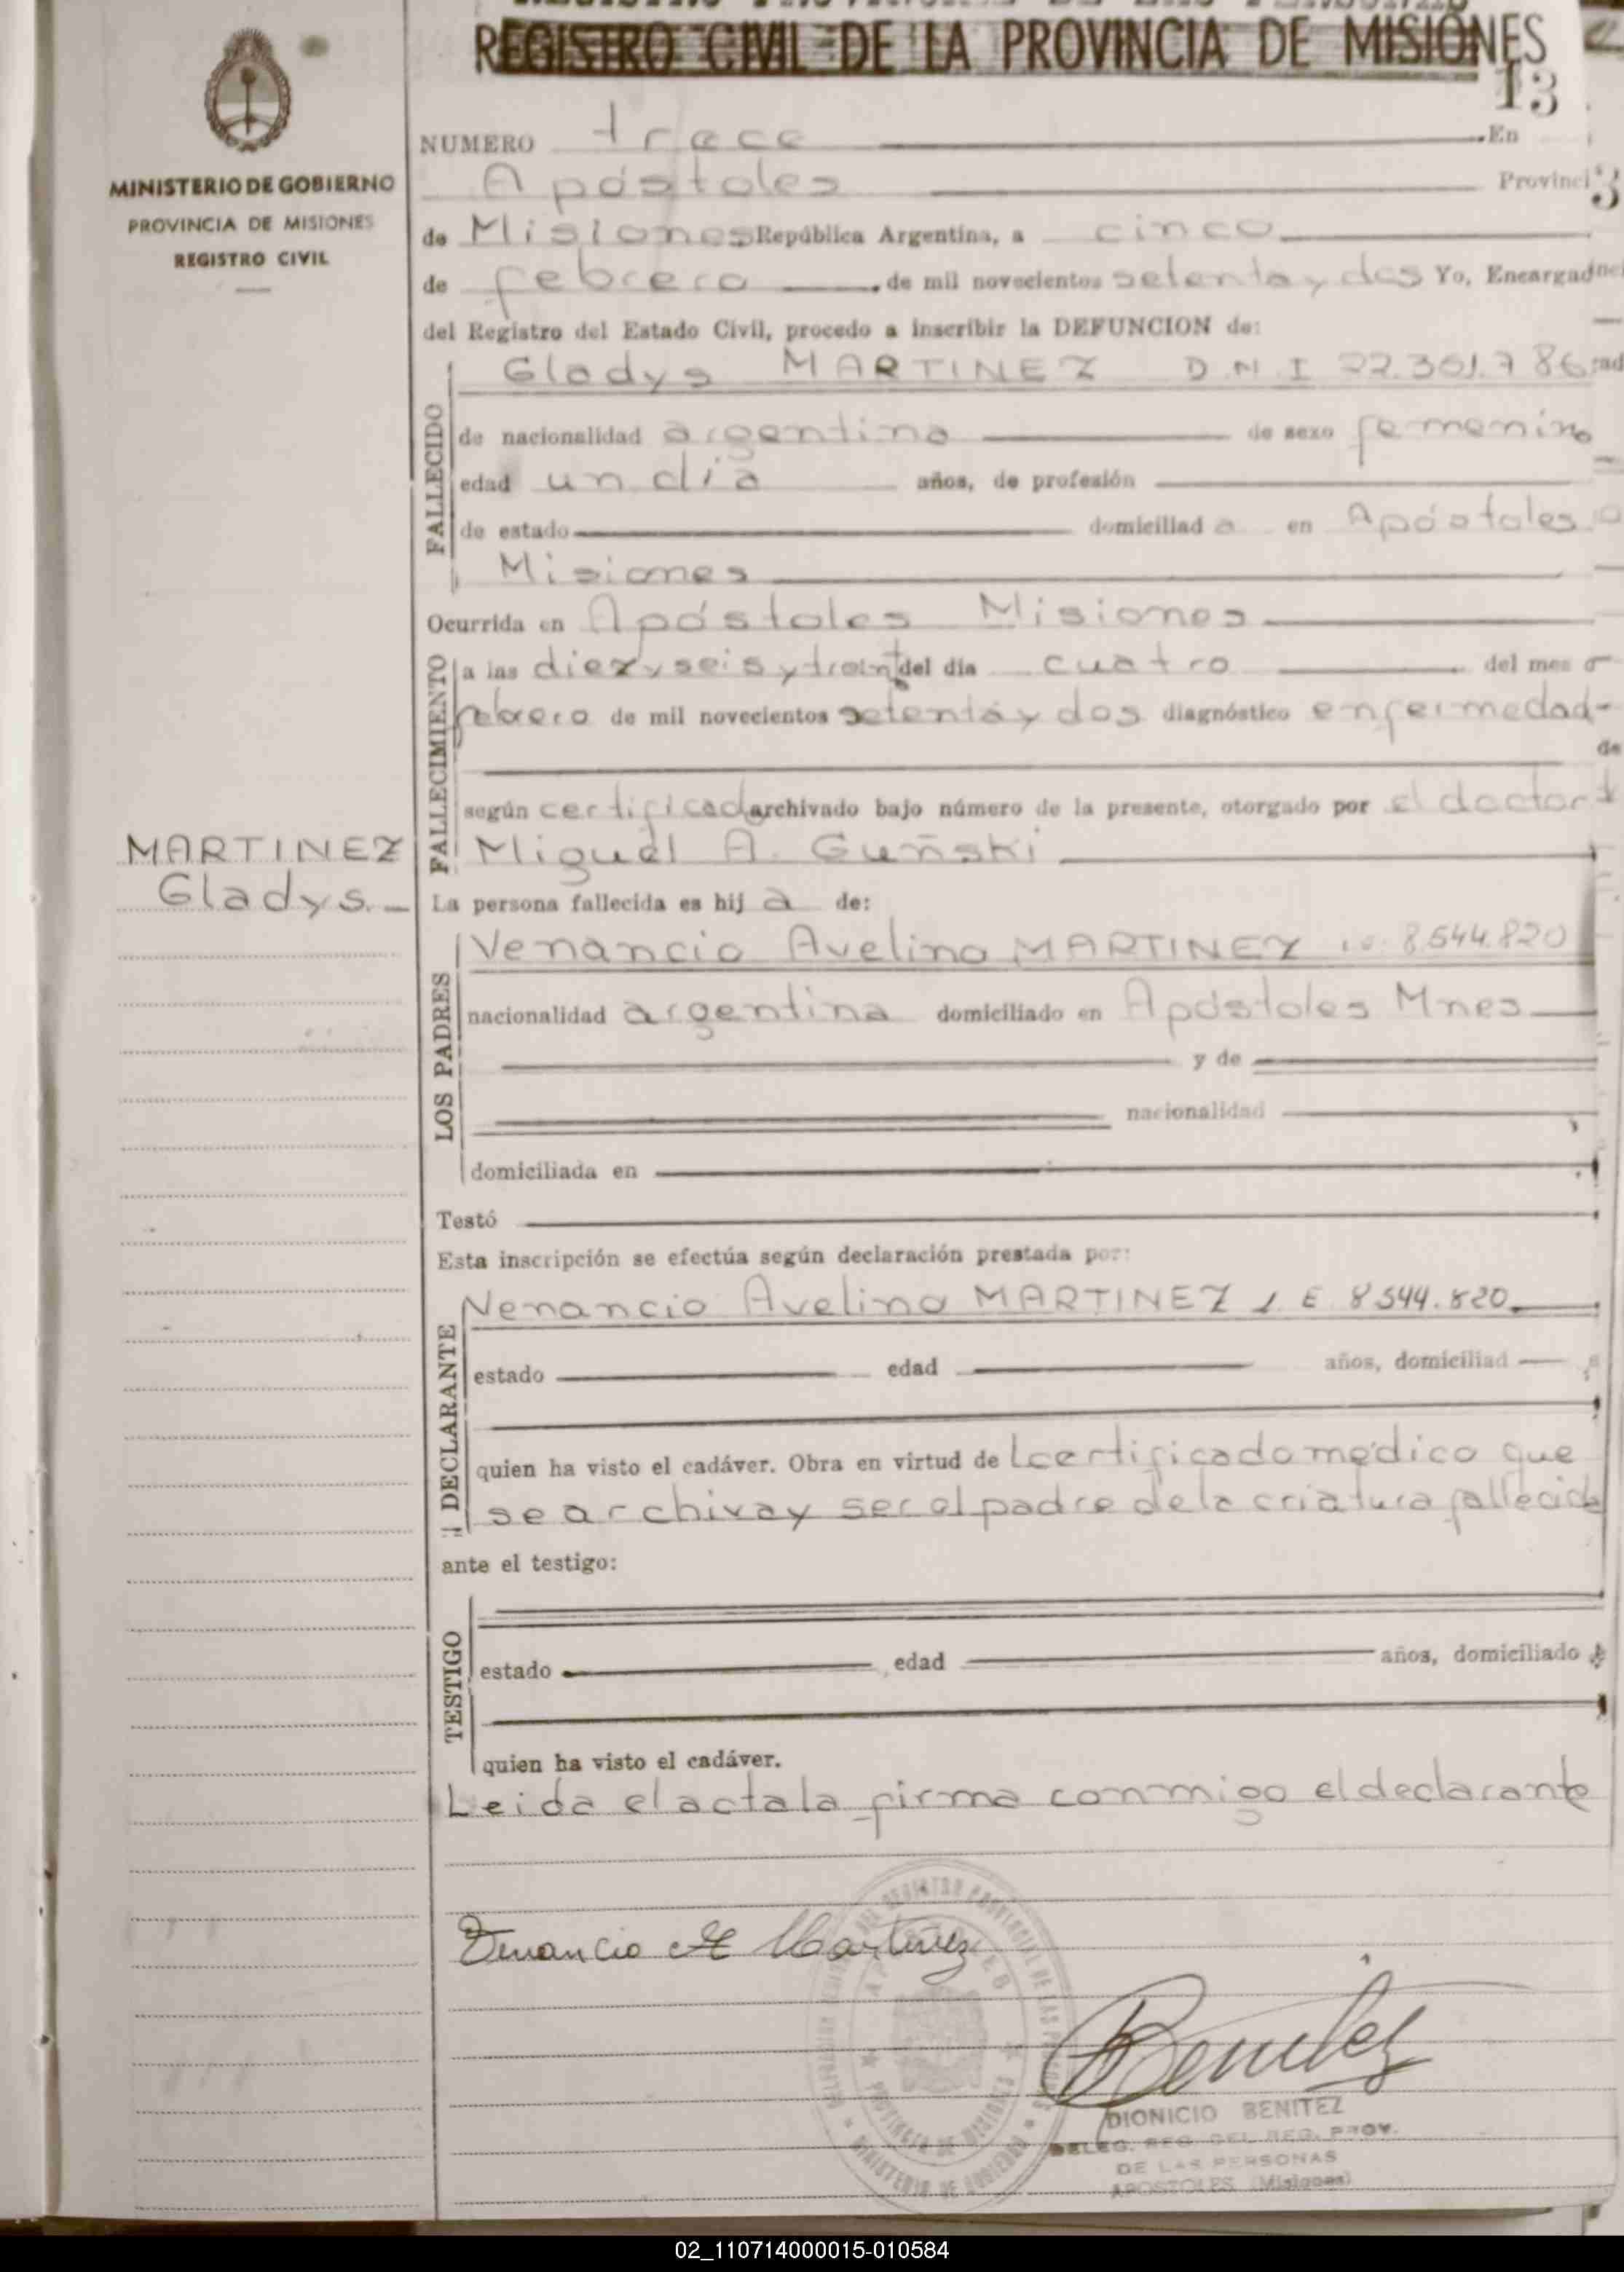 REGISTRO CIVIL DE LA PROVINCIA DE MISIONES
13
MINISTERIO DE GOBIERNO
PROVINCIA DE MISIONES
REGISTRO CIVIL
NUMERO trece En
Apóstoles Provinci
de Misiones República Argentina, a cinco
de febrero de mil novecientos setenta y dos Yo, Encargad
del Registro del Estado Civil, procedo a inscribir la DEFUNCION de:
FALLECIDO
Gladys MARTINEZ D.N.I 22.301.786
de nacionalidad argentina de sexo femenino
edad un día años, de profesión
de estado domiciliad a en Apóstoles
Misiones
Ocurrida en Apóstoles Misiones
FALLECIMIENTO
a las diez y seis y treint del día cuatro del mes
febrero de mil novecientos setenta y dos diagnóstico enfermedad-
de
según certificado archivado bajo número de la presente, otorgado por el doctor
Miguel A. Guñski
MARTINEZ
Gladys.-
La persona fallecida es hij a de:
LOS PADRES
Venancio Avelino MARTINEZ 8.544.820
nacionalidad argentina domiciliado en Apóstoles Mnes
y de
nacionalidad
domiciliada en
Testó
Esta inscripción se efectúa según declaración prestada por:
DECLARANTE
Venancio Avelino MARTINEZ L E 8544.820
estado edad años, domiciliad
quien ha visto el cadáver. Obra en virtud de l certificado médico que
se archiva y ser el padre de la criatura fallecida
ante el testigo:
TESTIGO
estado edad años, domiciliado
quien ha visto el cadáver.
Leida el acta la firma conmigo el declarante
Venancio A Martinez
Benitez
DIONICIO BENITEZ
DELEG. REG. DEL REG. PROV.
DE LAS PERSONAS
APOSTOLES (Misiones)
02_110714000015-010584